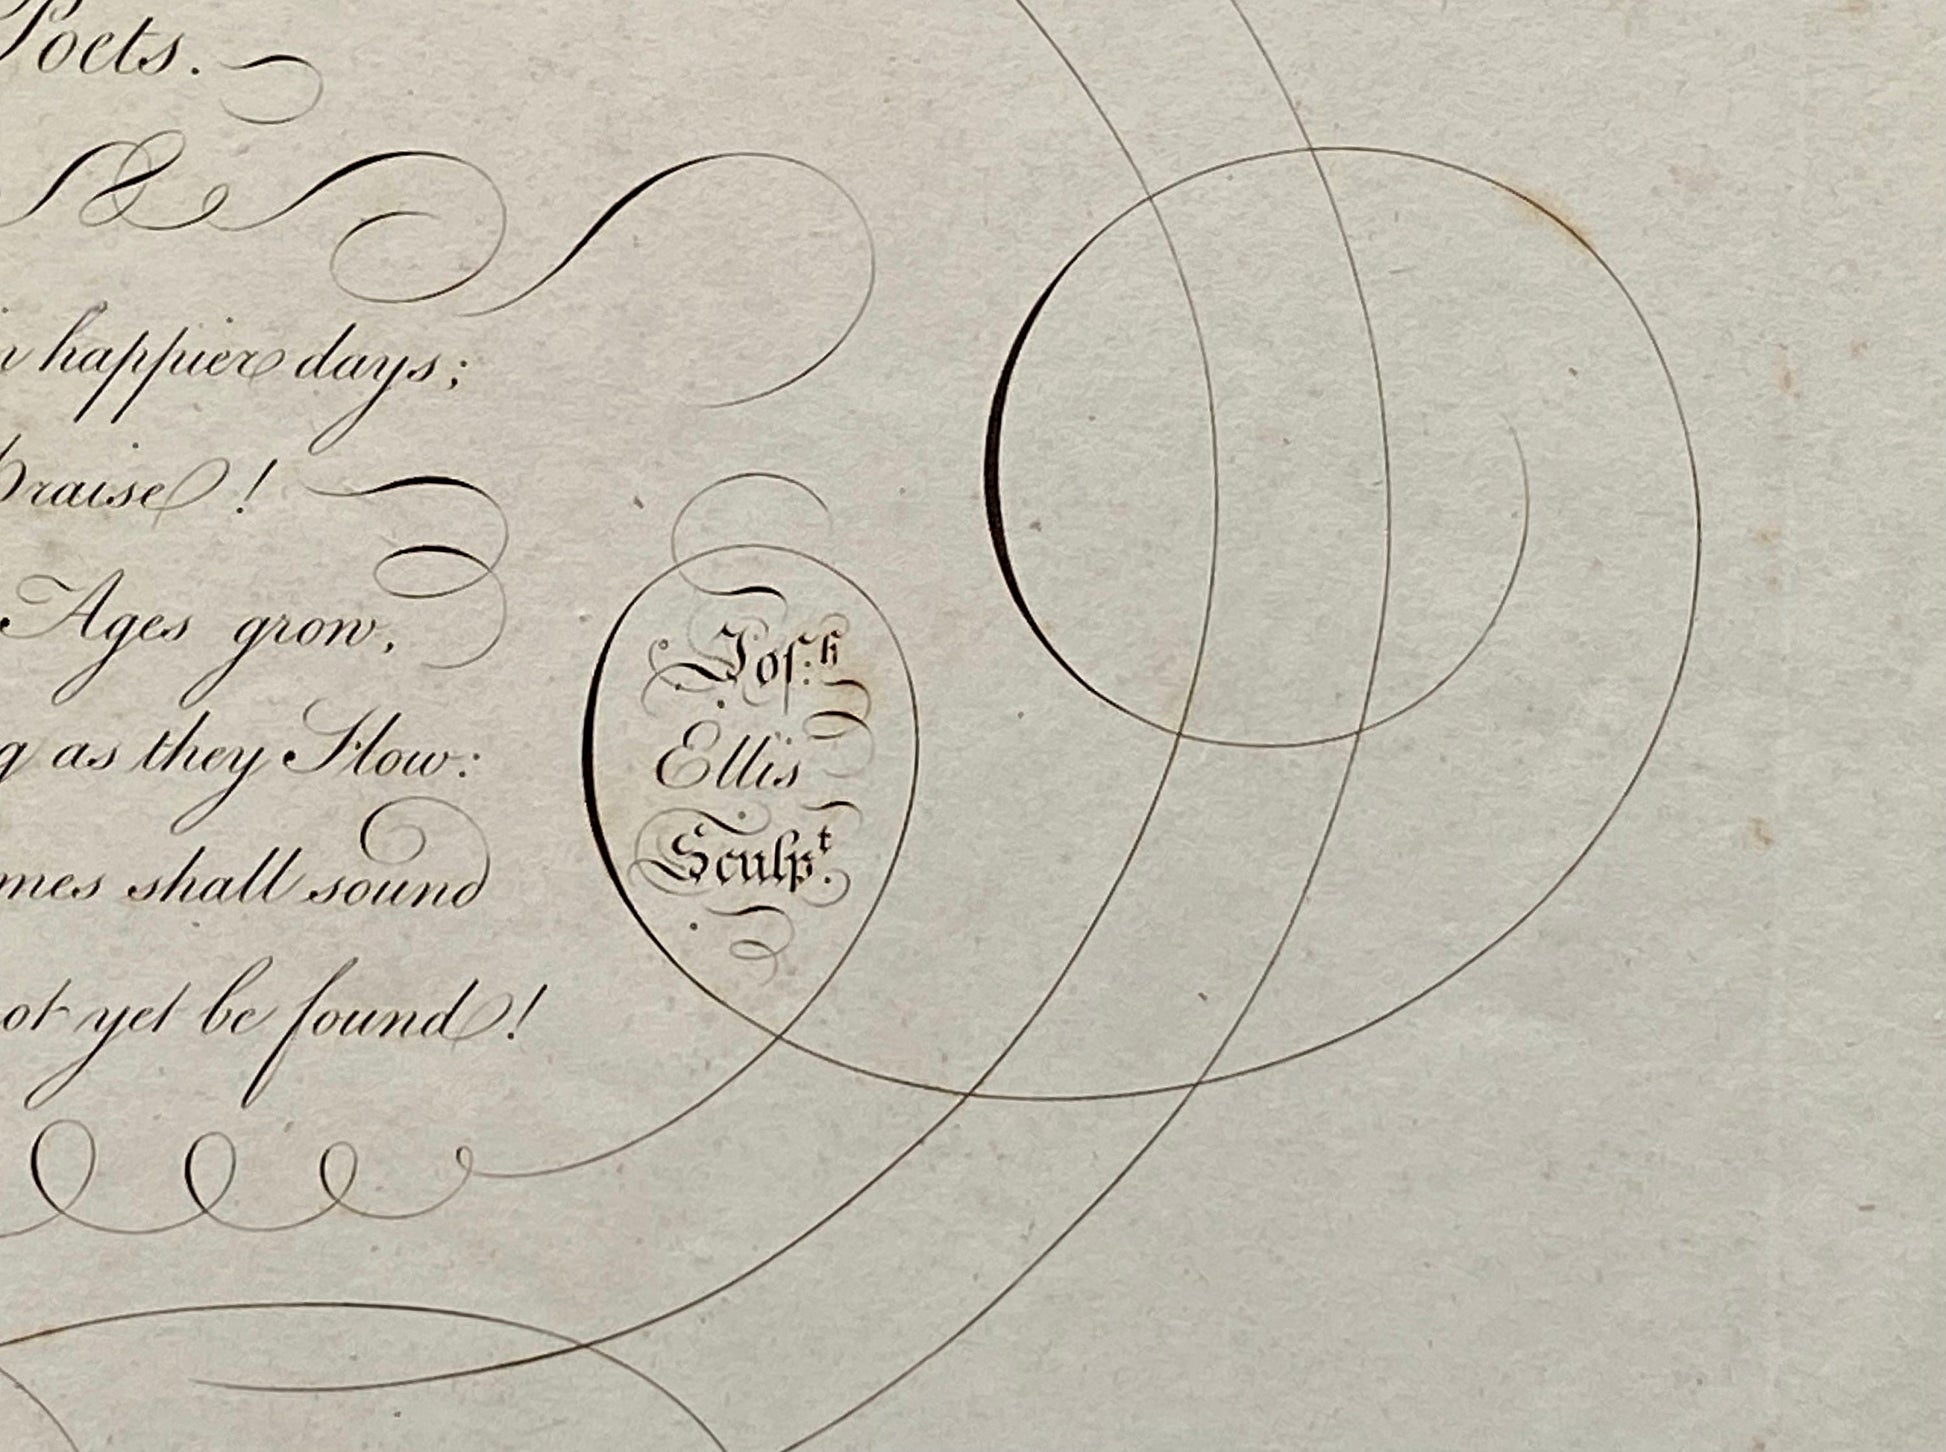 Poets.
happier days;
praise!
Ages grow,
as they Flow:
shall sound
yet be found!
Joſ:h
Ellis
Sculpt.